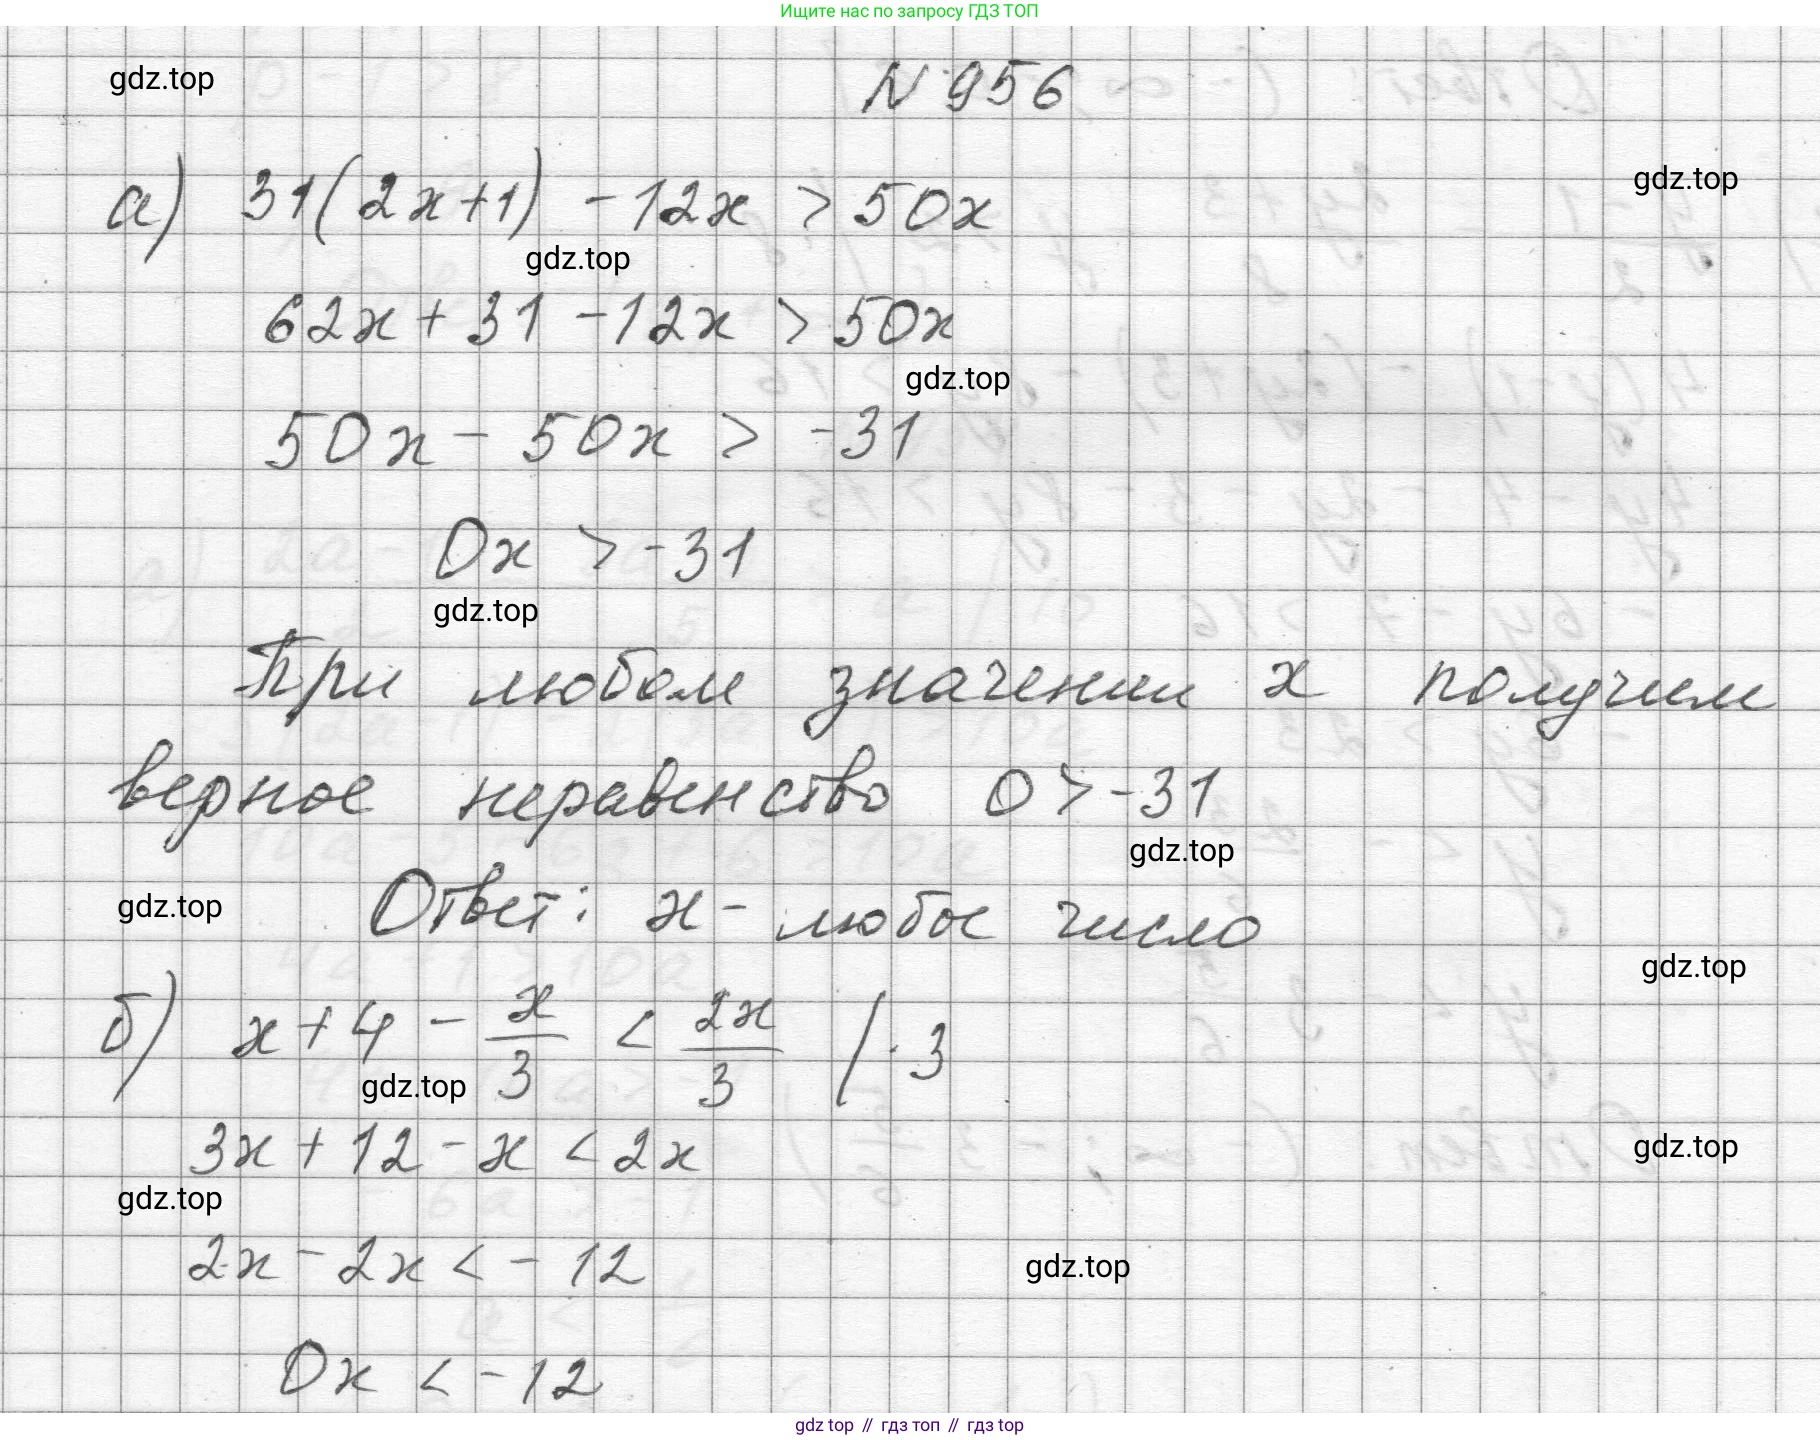 Ищите нас по запросу ГДЗ ТОП
gdz.top
N 956
а) 31(2x+1) - 12x > 50x
gdz.top
gdz.top
62x + 31 - 12x > 50x
gdz.top
50x - 50x > -31
0x > -31
gdz.top
При любом значении x получим
верное неравенство 0 > -31
gdz.top
gdz.top
Ответ: x - любое число
gdz.top
б) x + 4 - x/3 < 2x/3 | · 3
gdz.top
3x + 12 - x < 2x
gdz.top
gdz.top
2x - 2x < - 12
gdz.top
0x < - 12
gdz.top // гдз топ // гдз top